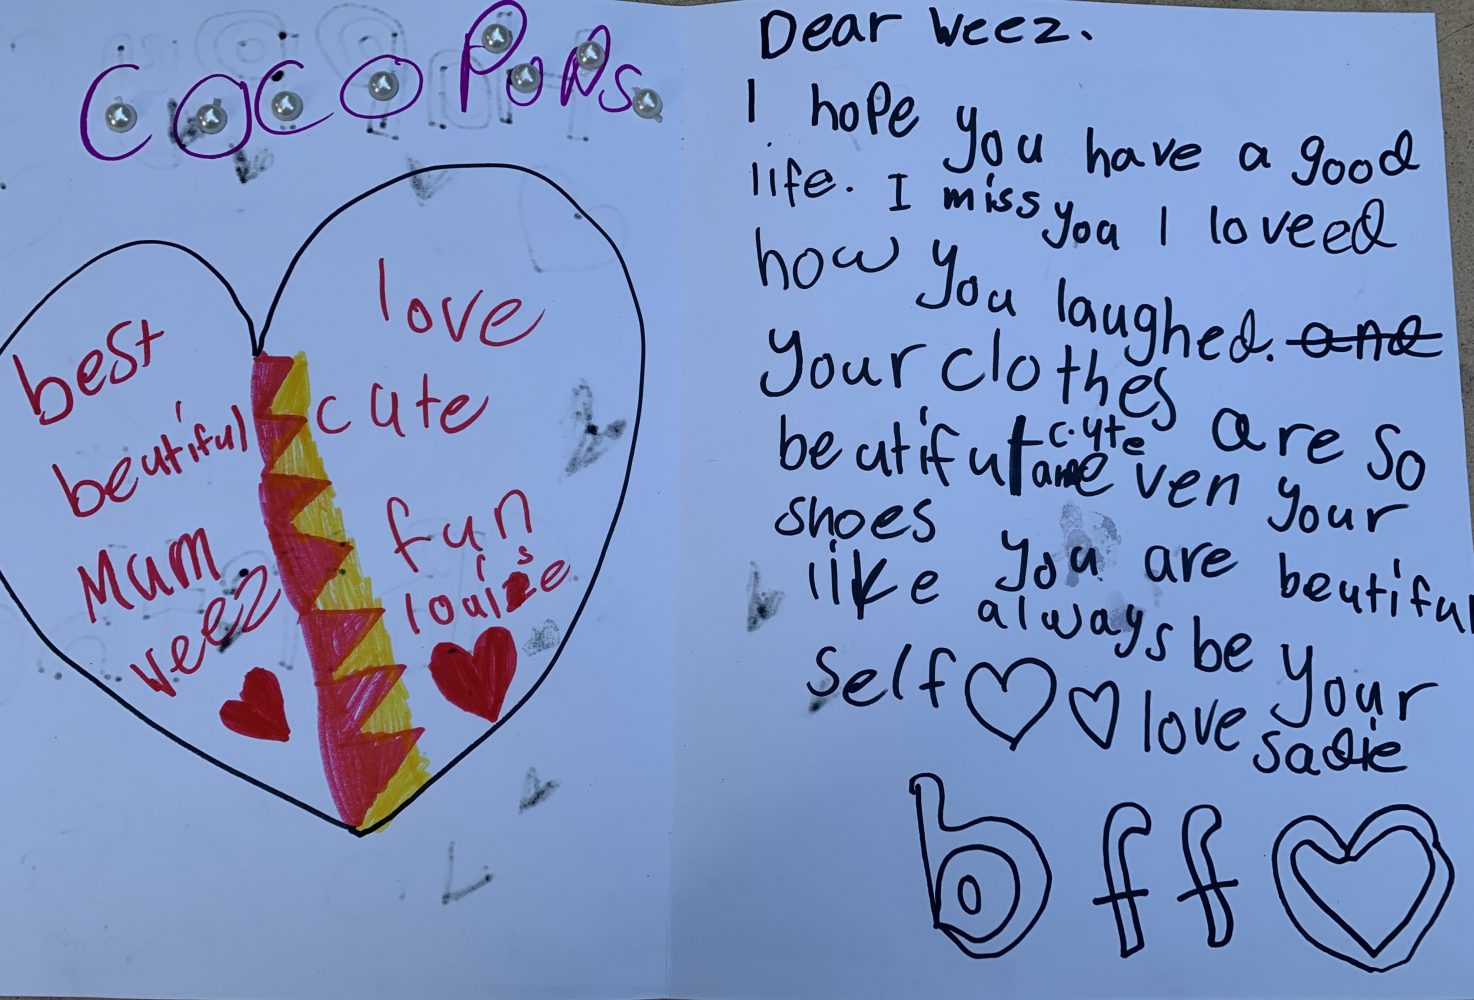 COCO POPs
best
beutiful
Mum
weez
love
cute
fun
louise
Dear Weez.
I hope you have a good
life. I miss you I loveed
how you laughed. and
your clothes are so
beutiful cute and even your
shoes like you are beutiful
always be your
self love sadie
bff